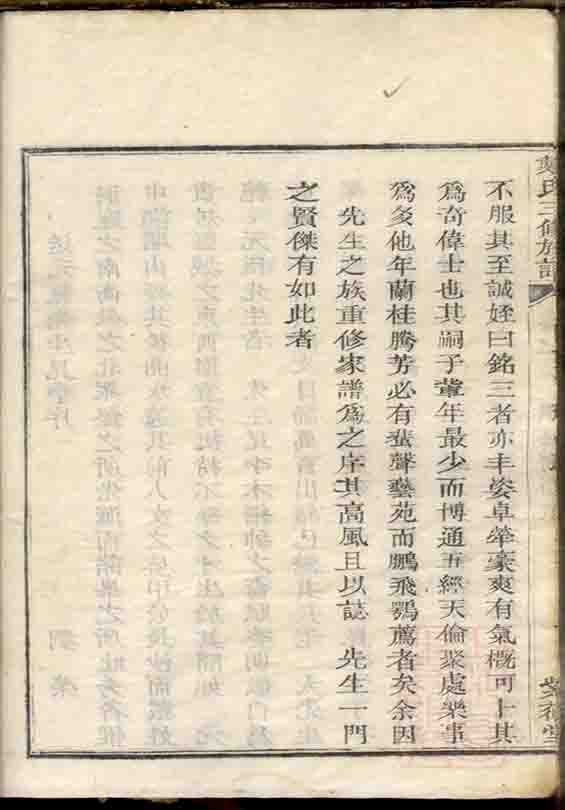 不服其至誠姪曰銘三者亦丰姿卓犖豪爽有氣槪可卜其
爲奇偉士也其嗣于輩年最少而博通五經天倫聚處樂事
爲多他年蘭桂騰芳必有蜚聲藝苑而鵬飛鶚薦者矣余因
先生之族重修家譜爲之序其高風且以誌 先生一門
之賢傑有如此者